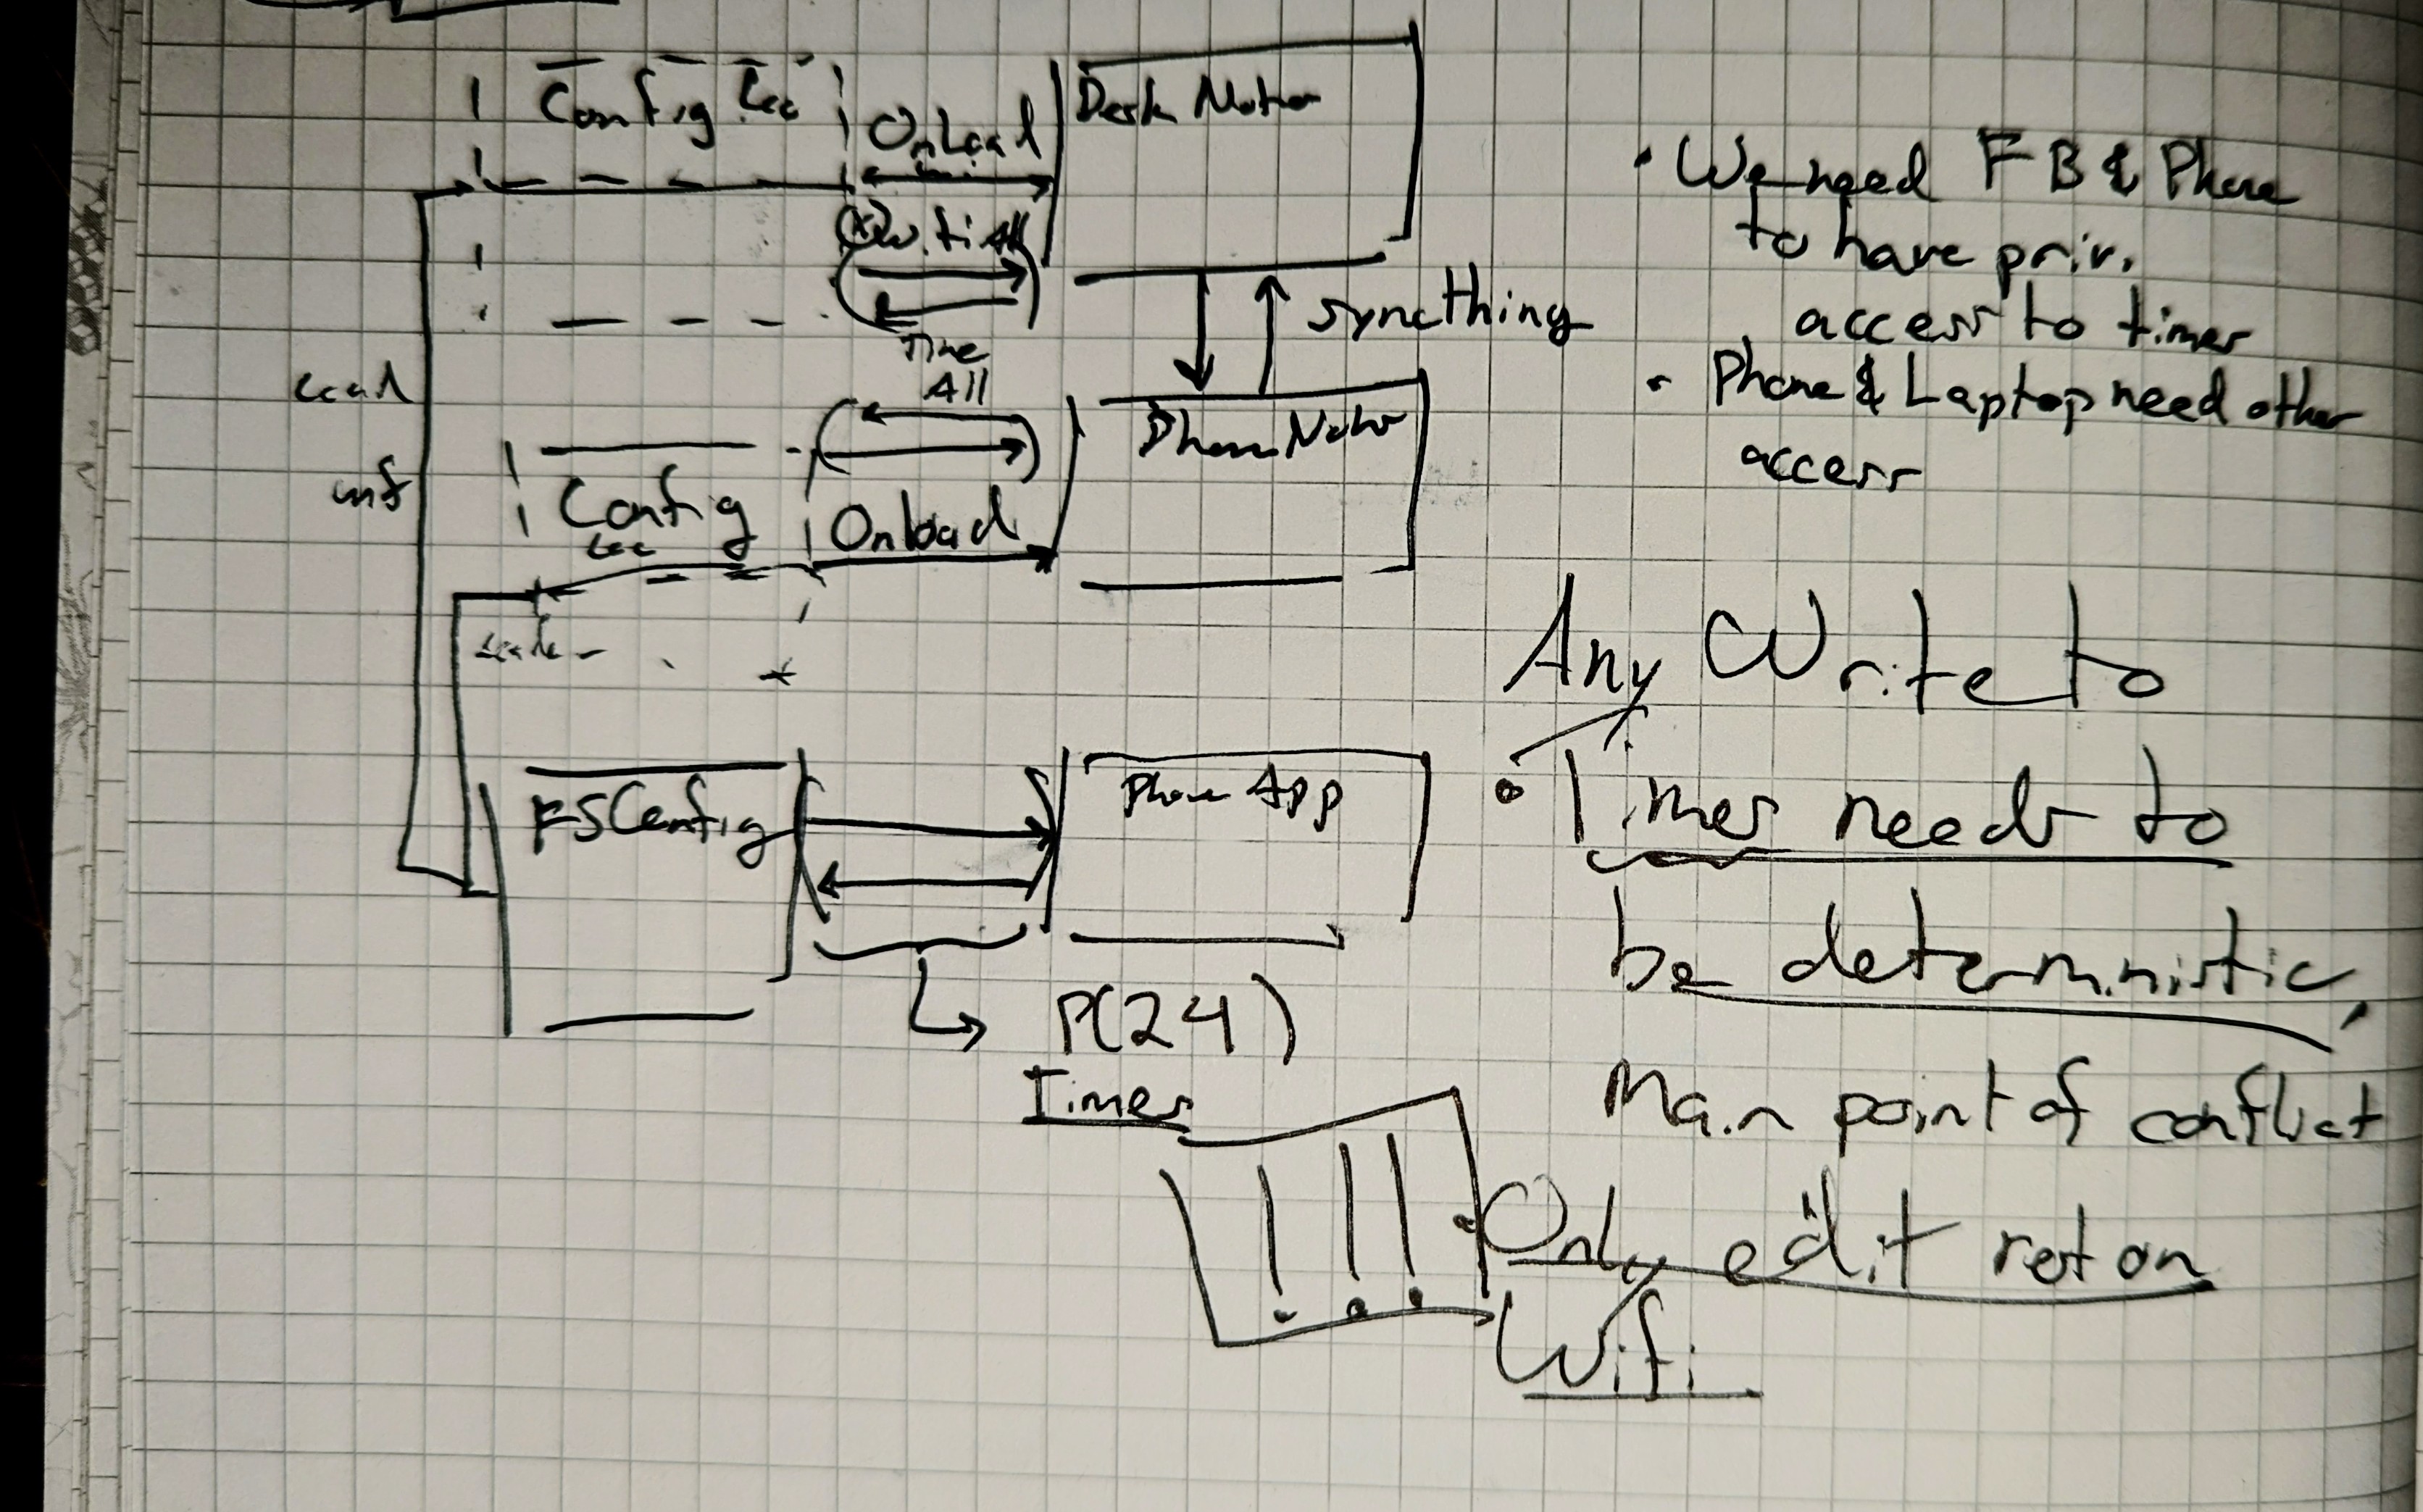 Config Loc
OnLoad
All
Time
All
syncthing
Config
Loc
Onload
FSConfig
Phone App
P(24)
Timer
• We need FB & Phone
to have priv.
access to timer
• Phone & Laptop need other
access
Any Write to
• Timer needs to
be deterministic,
Main point of conflict
Only edit rest on
Wifi